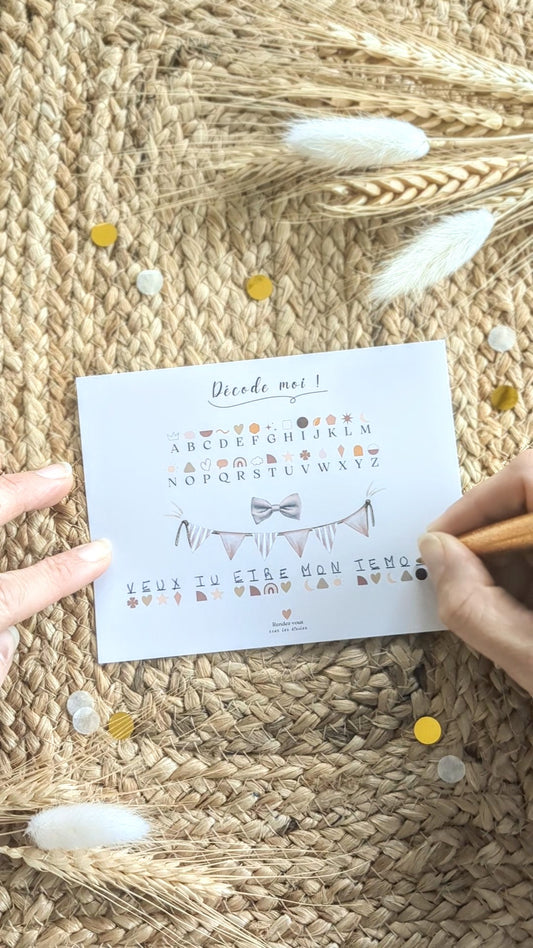 Décode moi !
A B C D E F G H I J K L M
N O P Q R S T U V W X Y Z
VEUX TU ETRE MON TEMO
Rendez-vous
sous les étoiles